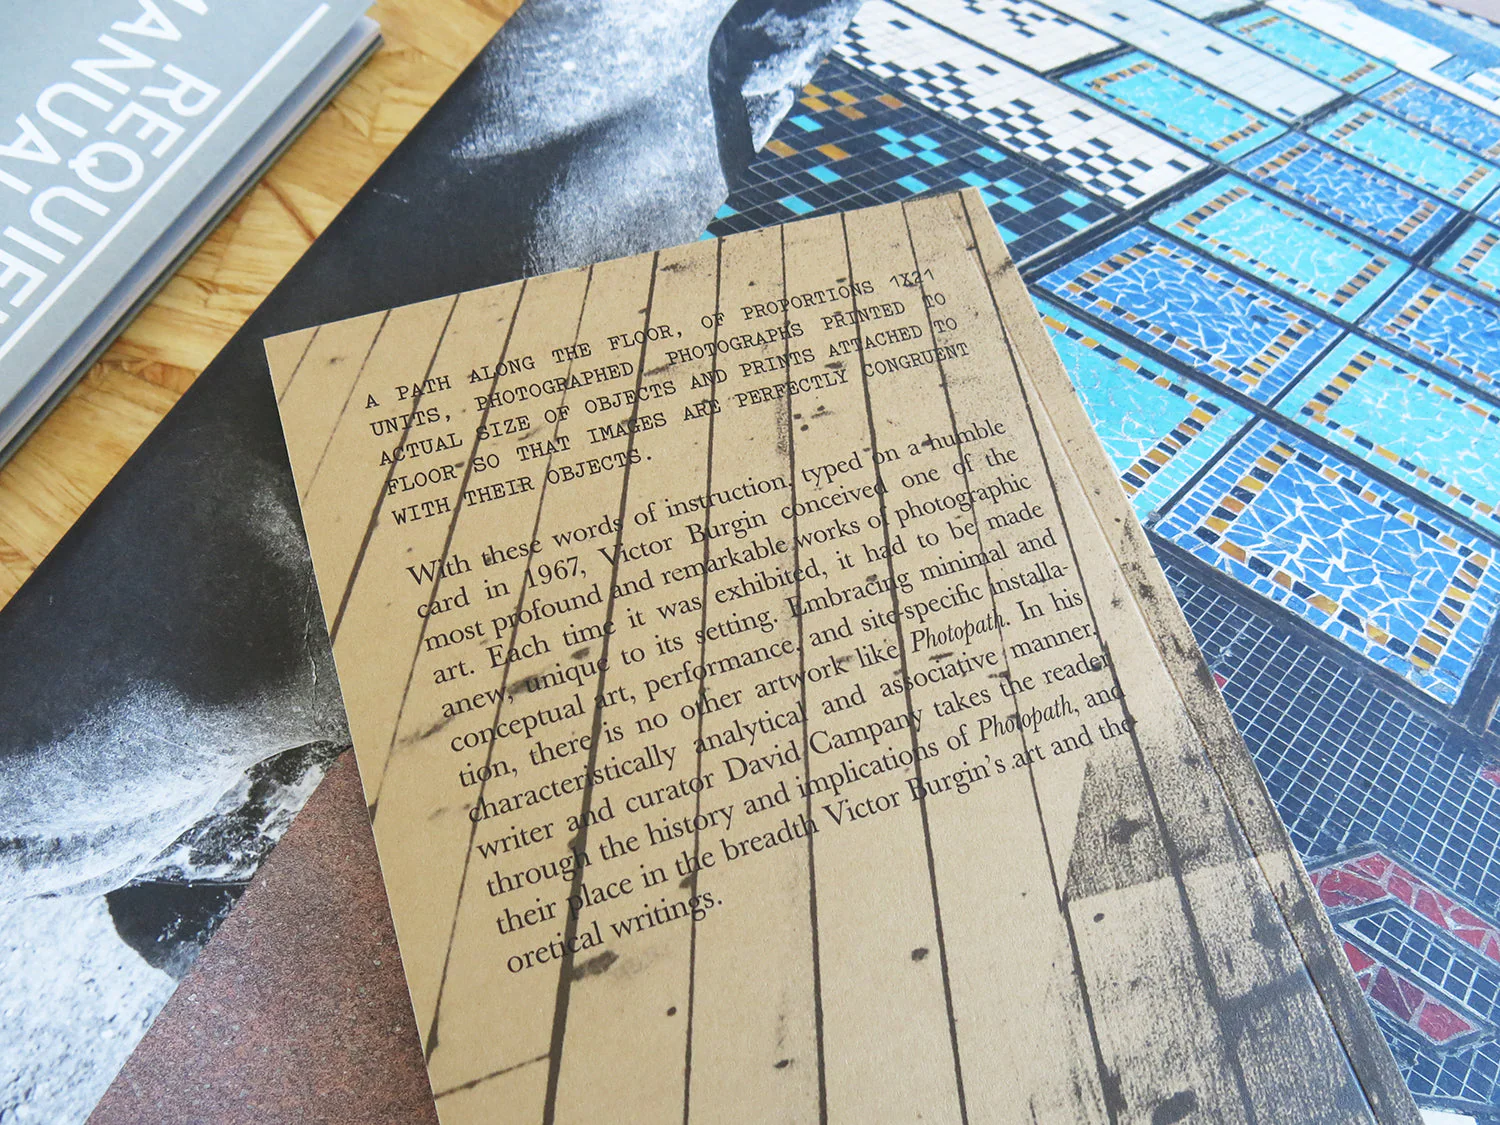 MANUAL
REQUIEM
A PATH ALONG THE FLOOR, OF PROPORTIONS 1X21
UNITS, PHOTOGRAPHED. PHOTOGRAPHS PRINTED TO
ACTUAL SIZE OF OBJECTS AND PRINTS ATTACHED TO
FLOOR SO THAT IMAGES ARE PERFECTLY CONGRUENT
WITH THEIR OBJECTS.
With these words of instruction, typed on a humble
card in 1967, Victor Burgin conceived one of the
most profound and remarkable works of photographic
art. Each time it was exhibited, it had to be made
anew, unique to its setting. Embracing minimal and
conceptual art, performance, and site-specific installa-
tion, there is no other artwork like Photopath. In his
characteristically analytical and associative manner,
writer and curator David Campany takes the reader
through the history and implications of Photopath, and
their place in the breadth Victor Burgin's art and the
oretical writings.